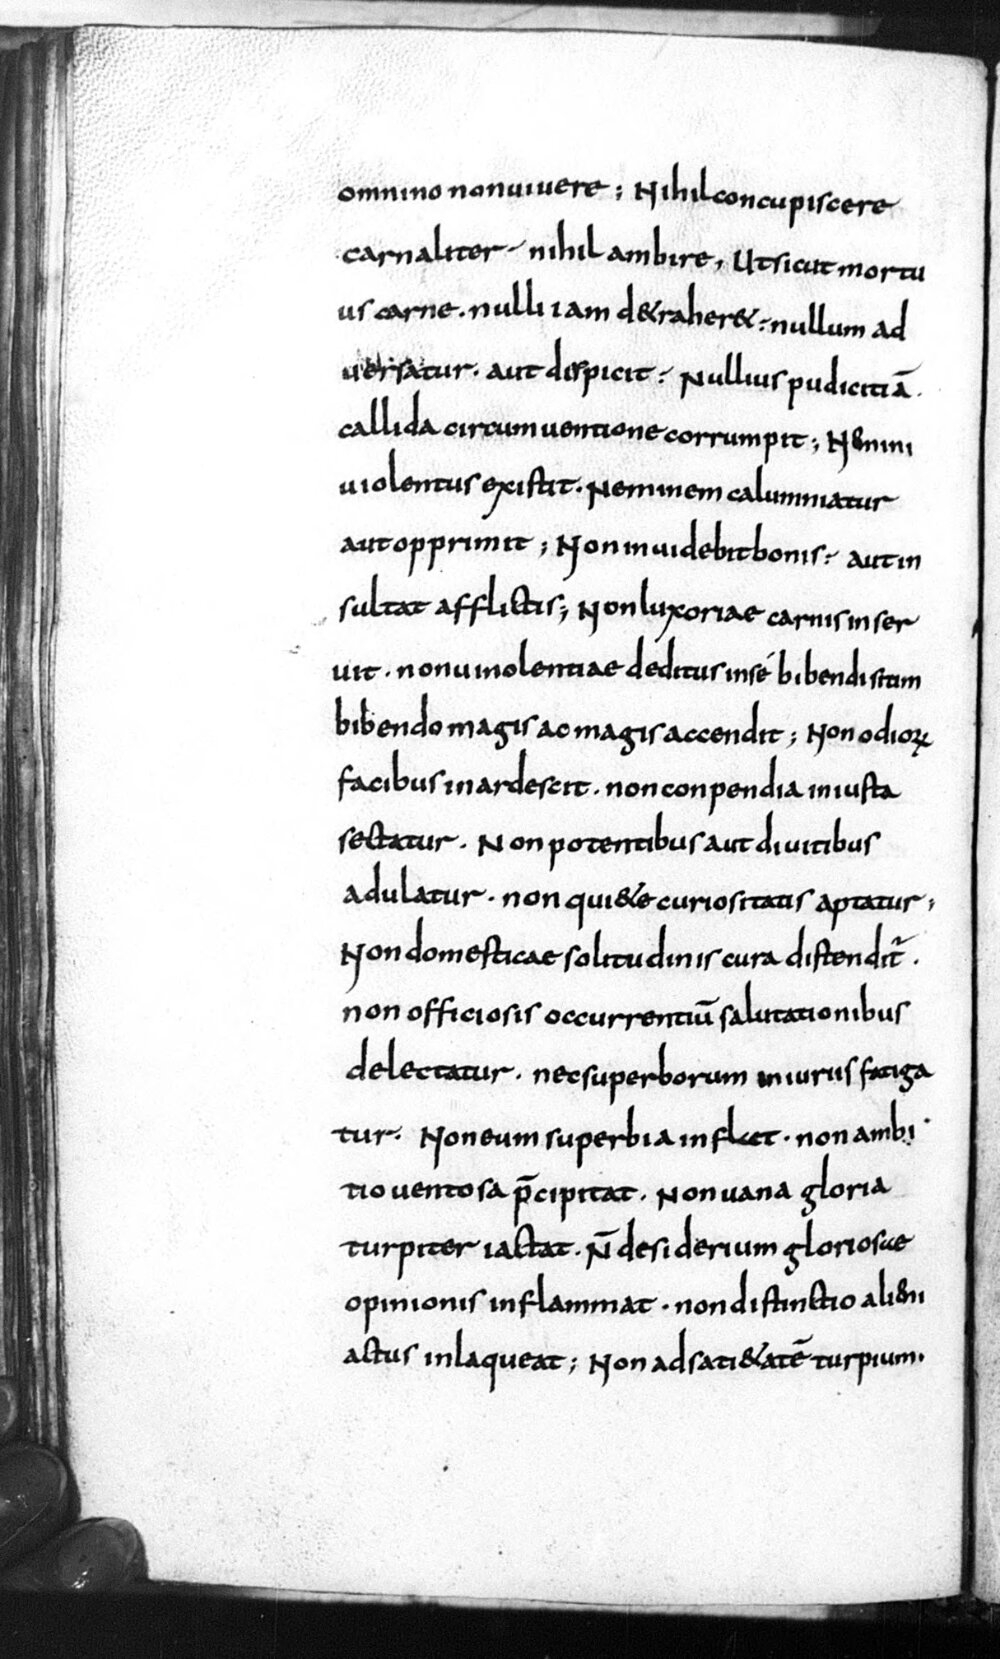 omnino non uiuere ; Nihil concupiscere
carnaliter nihil ambire, Ut sicut mortu
us carne . nulli iam d&raher& : nullum ad
uersatur . aut dispicit : Nullius pudicitiā .
callida circumuentione corrumpit ; Nemini
uiolentus existit . Neminem calumniatur
aut opprimit ; Non inuidebit bonis : aut in
sultat afflictis ; Non luxoriae carnis inser
uit . non uinolentiae deditus in sé bibendi sitim
bibendo magis ac magis accendit ; Non odioꝝ
facibus inardescit . non conpendia iniusta
sectatur . Non potentibus aut diuitibus
adulatur . non qui&e curiositatis aptatur ;
Non domesticae solitudinis cura distendit̄ .
non officiosis occurrentiū salutationibus
delectatur . nec superborum iniuriis fatiga
tur . Non eum superbia inflat . non ambi
tio uentosa p̄cipitat . Non uana gloria
turpiter iactat . N̄ desiderium gloriosae
opinionis inflammat . non distinctio alieni
actus inlaqueat ; Non ad sati&atē turpium .